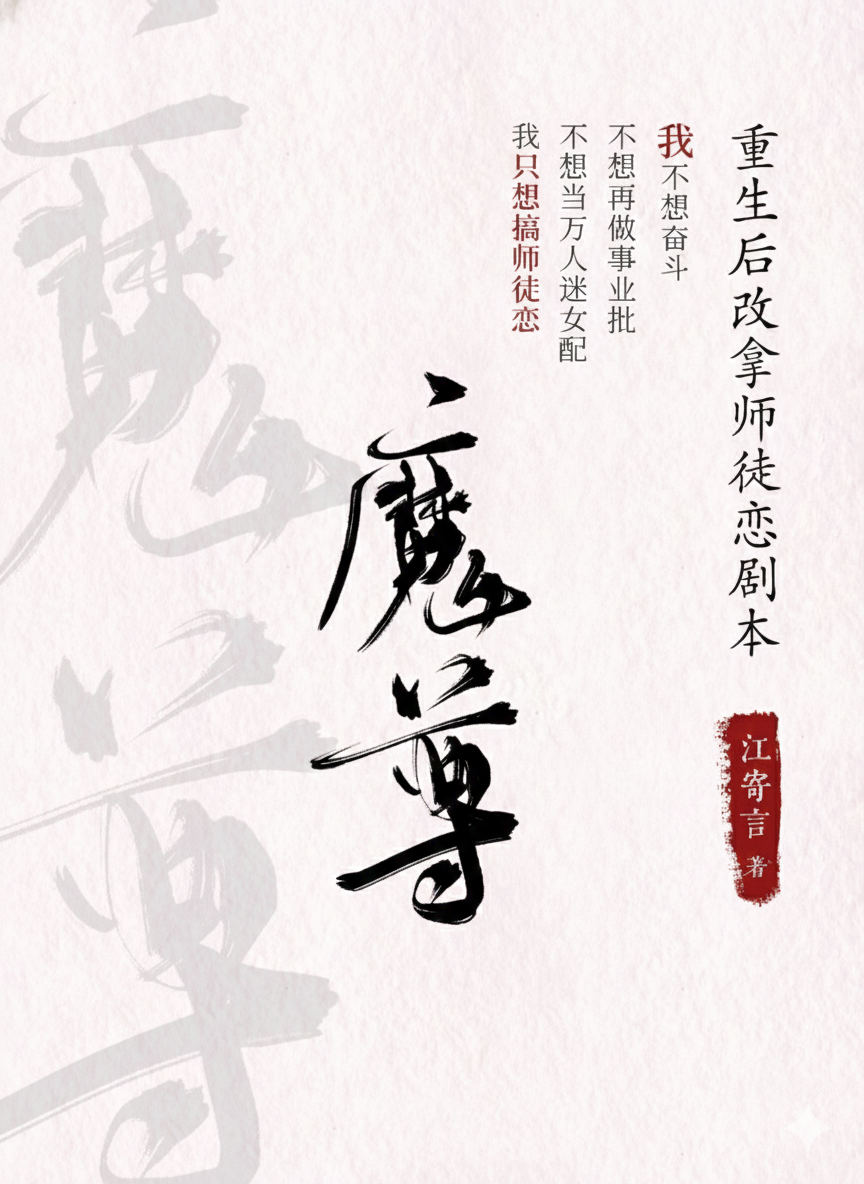 重生后改拿师徒恋剧本
江寄言 著
我不想奋斗
不想再做事业批
不想当万人迷女配
我只想搞师徒恋
魔尊
魔尊